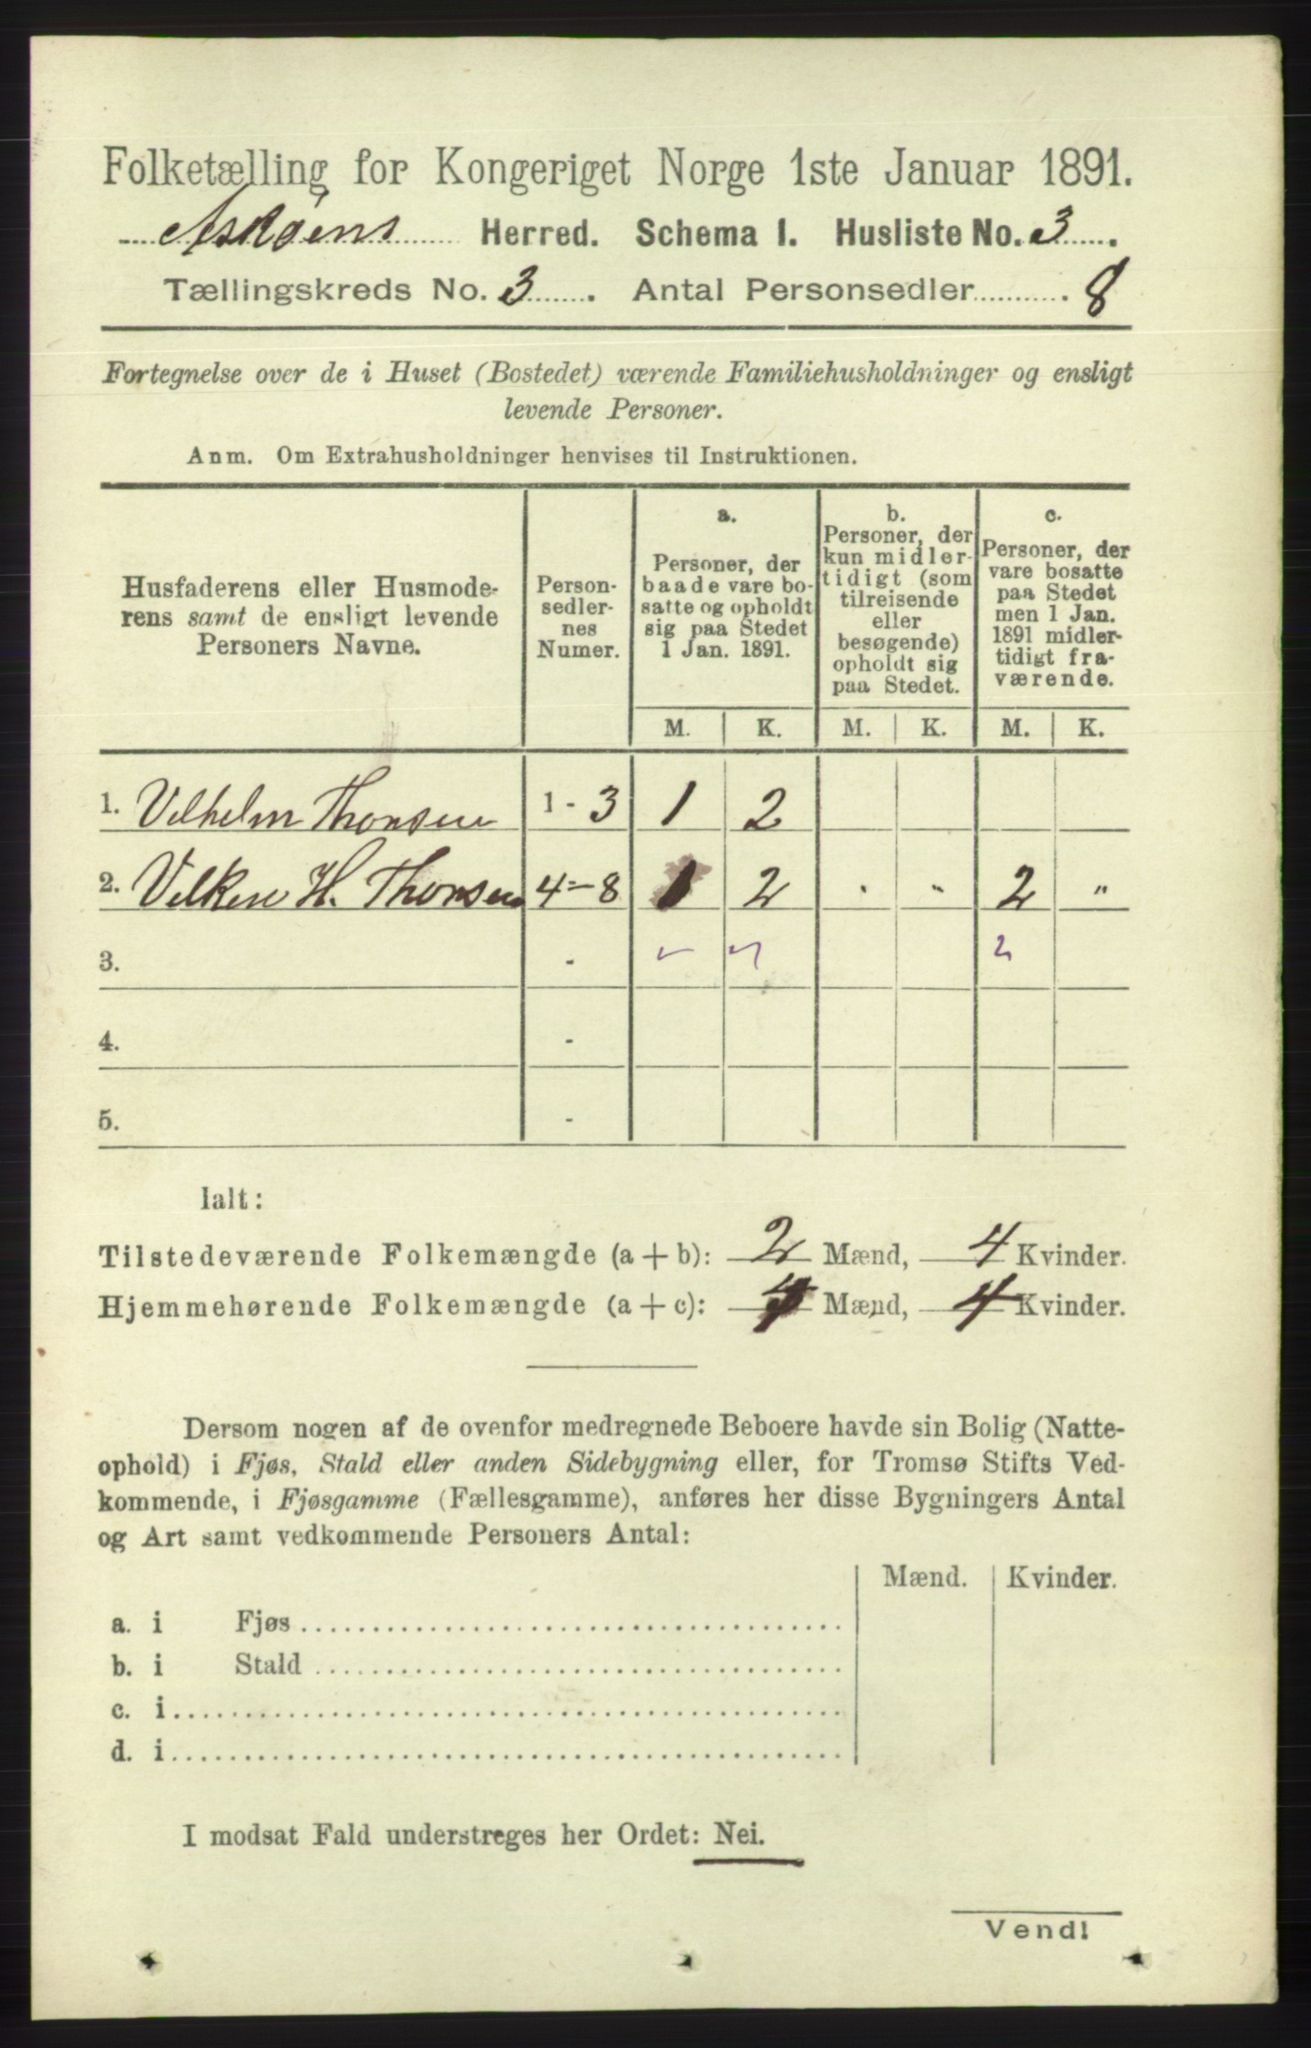 Folketælling for Kongeriget Norge 1ste Januar 1891.
Askøens Herred. Schema I. Husliste No. 3.
Tællingskreds No. 3. Antal Personsedler. 8
Fortegnelse over de i Huset (Bostedet) værende Familiehusholdninger og ensligt
levende Personer.
Anm. Om Extrahusholdninger henvises til Instruktionen.
Husfaderens eller Husmode-
rens samt de ensligt levende
Personers Navne.
Person-
sedler-
nes
Numer.
a.
Personer, der
baade vare bo-
satte og opholdt
sig paa Stedet
1 Jan. 1891.
b.
Personer, der
kun midler-
tidigt (som
tilreisende
eller
besøgende)
opholdt sig
paa Stedet.
c.
Personer, der
vare bosatte
paa Stedet
men 1 Jan.
1891 midler-
tidigt fra-
værende.
M. K. M. K. M. K.
1. Vilhelm Thonsen 1 - 3 1 2
2. Velken H. Thonsen 4 - 8 1 2 . " 2 "
3. - 2
4. -
5. -
Ialt:
Tilstedeværende Folkemængde (a + b): 2 Mænd, 4 Kvinder.
Hjemmehørende Folkemængde (a + c): 4 Mænd, 4 Kvinder.
Dersom nogen af de ovenfor medregnede Beboere havde sin Bolig (Natte-
ophold) i Fjøs, Stald eller anden Sidebygning eller, for Tromsø Stifts Ved-
kommende, i Fjøsgamme (Fællesgamme), anføres her disse Bygningers Antal
og Art samt vedkommende Personers Antal:
Mænd. Kvinder.
a. i Fjøs
b. i Stald
c. i
d. i
I modsat Fald understreges her Ordet: Nei.
Vendl